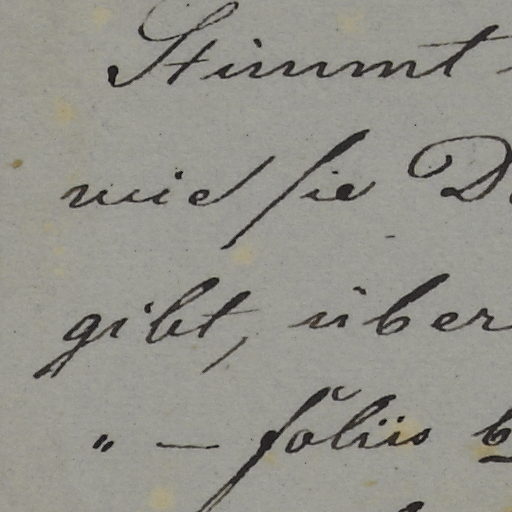 Stimmt
wie sie D
gibt, über
" — foliis b